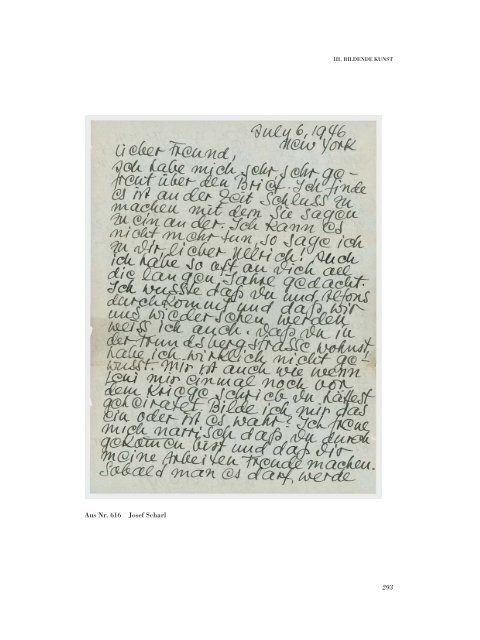 III. BILDENDE KUNST
July 6, 1946
New York
Lieber Freund,
ich habe mich sehr sehr ge-
freut über den Brief. Ich finde
es ist an der Zeit Schluss zu
machen mit dem Sie sagen
zu einander. Ich kann es
nicht mehr tun, so sage ich
zu Dir, lieber Ullrich! Auch
ich habe so oft an Dich all
die langen Jahre gedacht.
Ich wusste daß Du und Alfons
durchkommt und daß wir
uns wiedersehen werden
weiss ich auch. Daß Du in
der Frundsbergstrasse wohnst,
habe ich wirklich nicht ge-
wusst. Mir ist auch wie wenn
Leni mir einmal noch vor
dem Kriege schrieb Du hättest
geheiratet. Bilde ich mir das
ein oder ist es wahr? Ich freue
mich närrisch daß Du durch
gekomen bist und daß Dir
meine Arbeiten Freude machen.
Sobald man es darf, werde
Aus Nr. 616 Josef Scharl
293